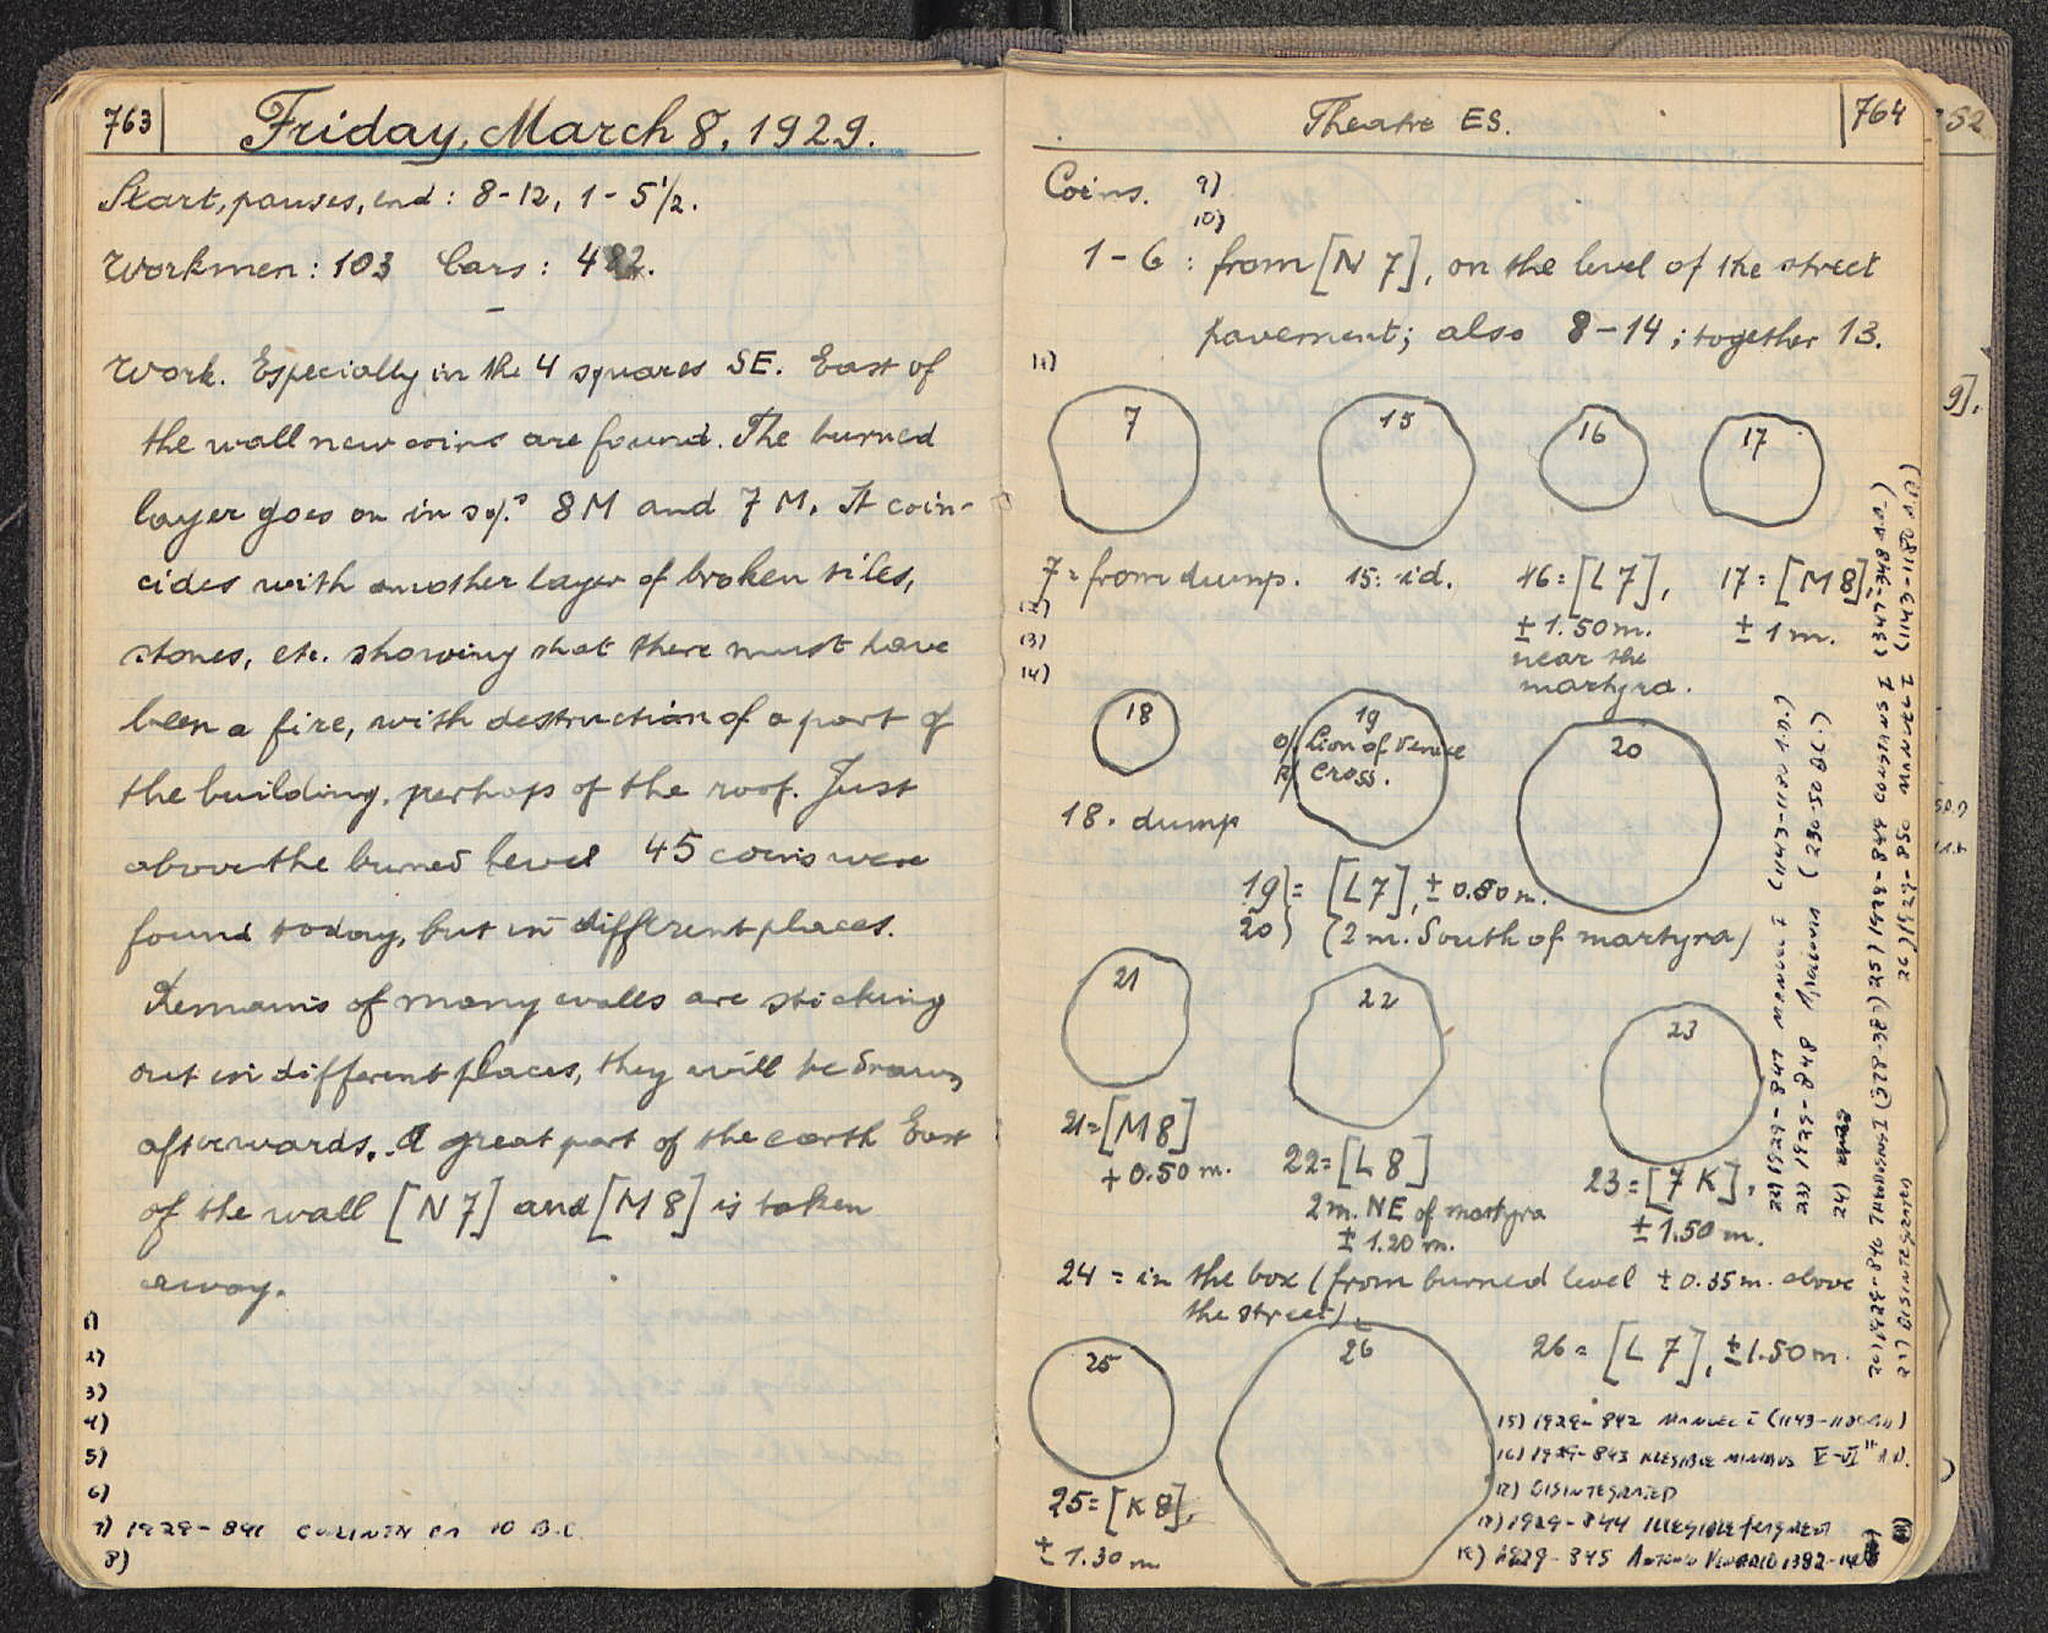 763
Friday, March 8, 1929.
Start, pauses, end: 8-12, 1-5½.
Workmen: 103 Cars:
Work. Especially in the 4 squares SE. East of
the wall new coins are found. The burned
layer goes on in sq.s 8M and 7M. It coin-
cides with another layer of broken tiles,
stones, etc. showing that there must have
been a fire, with destruction of a part of
the building, perhaps of the roof. Just
above the burned level 45 coins were
found today, but in different places.
Remains of many walls are sticking
out in different places, they will be drawn
afterwards. A great part of the earth East
of the wall [N 7] and [M 8] is taken
away.
1)
2)
3)
4)
5)
6)
7) 1929-841 CORINTH 10 B.C.
8)
Theatre ES.
764
Coins. 9)
10)
1-6: from [N 7], on the level of the street
pavement; also 8-14; together 13.
11)
7
15
16
17
7= from dump. 15: id. 16=[L7], 17=[M8],
12)
± 1.50 m. ± 1 m.
13)
near the
14)
martyra.
18
19
O/ Lion of Venice
R/ Cross.
20
18. dump
19}= [L7], ± 0.80 m.
20} (2 m. South of martyra)
21
22
23
21=[M8]
+ 0.50 m.
22=[L8]
2 m. NE of martyra
± 1.20 m.
23=[7 K],
± 1.50 m.
24 = in the box (from burned level ± 0.35 m. above
the street).
25
26
26= [L 7], ± 1.50 m.
25=[K8],
± 1.30 m.
15) 1929-842 MANUEL I (1143-1180 A.D.)
16) 1929-843 ILLEGIBLE MINIMUS V-VI A.D.
17) DISINTEGRATED
18) 1929-844 ILLEGIBLE FRAGMENT
19) 1929-845 ANTONIO VENERIO 1382-1400
20) 1929-846 THEODOSIUS I (378-383)
21) DISINTEGRATED
22) 1929-847 MANUEL I (1143-1180 A.D.)
23) 1929-848 (230-50 B.C.)
24)
25) 1929-849 CONSTANS I (347-348 A.D.)
26) 1929-850 MANUEL I (1143-1180 A.D.)
52
9].